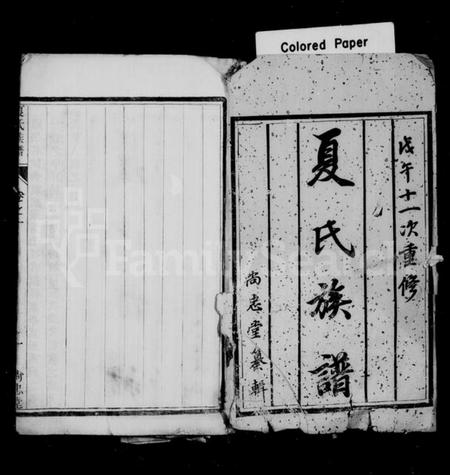 Colored Paper
戊午十一次重修
夏氏族譜
尚志堂纂輯
夏氏族譜
卷之一
尚志堂
FamilySearch